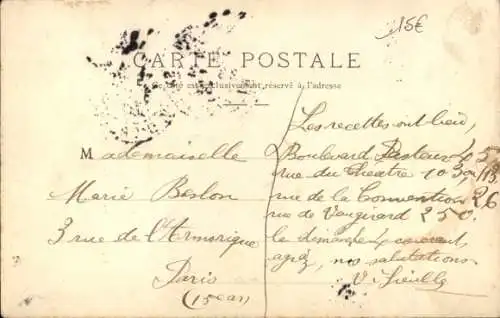 15€
CARTE POSTALE
Ce côté est exclusivement réservé à l'adresse
Mademoiselle
Marie Beslon
3 rue de l'Armorique
Paris
(15e ar)
Les recettes ont lieu,
Boulevard Pasteur
rue du Théatre
rue de la Convention 26
rue de Vaugirard 250.
le dimanche courant,
agréz, nos salutations.